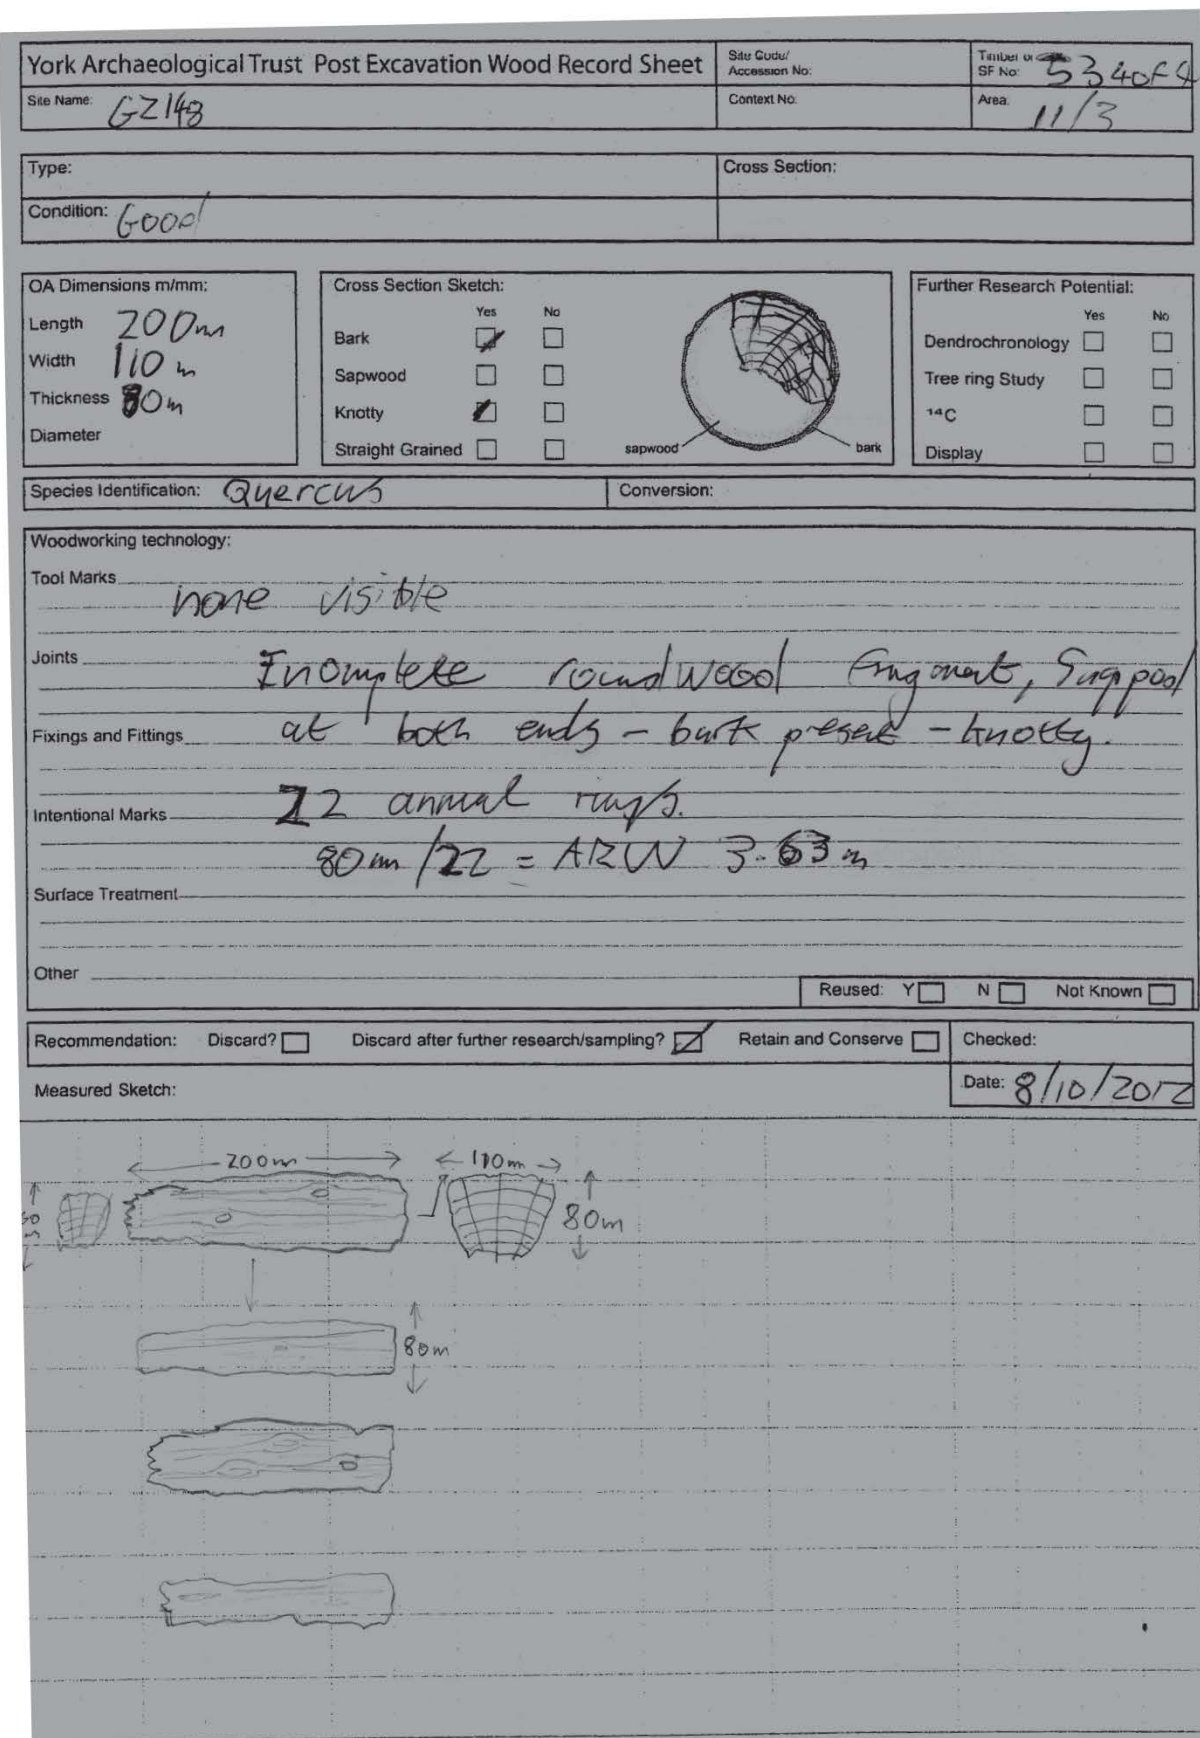 York Archaeological Trust Post Excavation Wood Record Sheet
Site Code/
Accession No:
Timber or
SF No: 53 4 of 4
Site Name: GZ148
Context No:
Area: 11/3
Type:
Cross Section:
Condition: Good
OA Dimensions m/mm:
Length 200m
Width 110m
Thickness 80m
Diameter
Cross Section Sketch:
Yes No
Bark
Sapwood
Knotty
Straight Grained
sapwood
bark
Further Research Potential:
Yes No
Dendrochronology
Tree ring Study
14C
Display
Species Identification: Quercus
Conversion:
Woodworking technology:
Tool Marks
none visible
Joints
Incomplete roundwood fragment, Snapped
Fixings and Fittings
at both ends - bark present - knotty.
Intentional Marks
22 annual rings.
80m/22 = ARW 3.63m
Surface Treatment
Other
Reused: Y N Not Known
Recommendation: Discard? Discard after further research/sampling? Retain and Conserve
Checked:
Measured Sketch:
Date: 8/10/2012
200m
110m
80m
80m